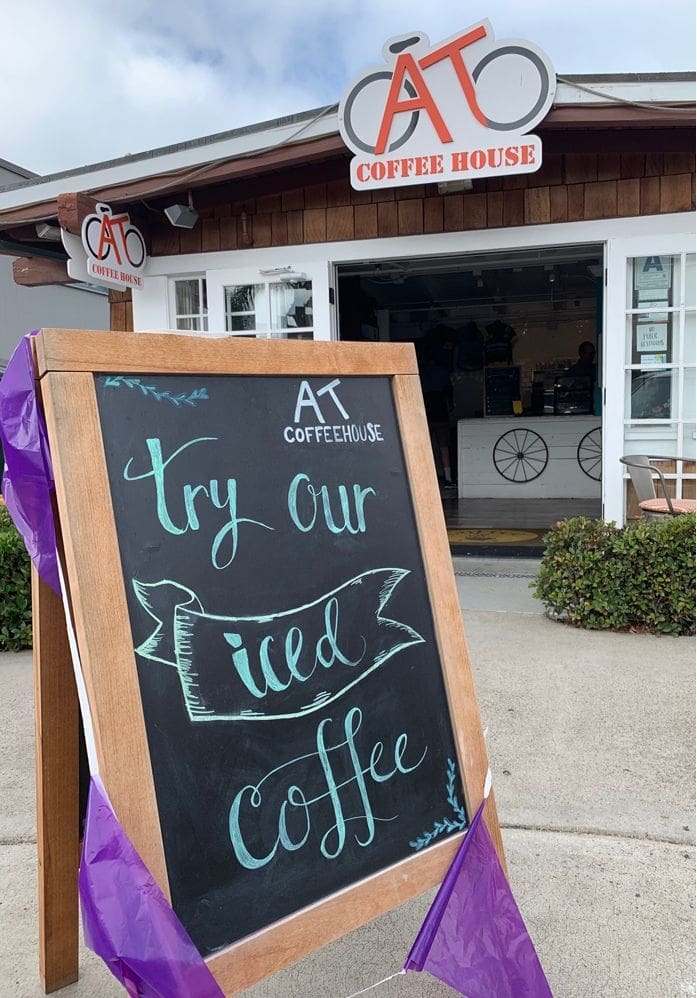 AT
COFFEE HOUSE
AT
COFFEE HOUSE
AT
COFFEEHOUSE
try our
iced
coffee
A